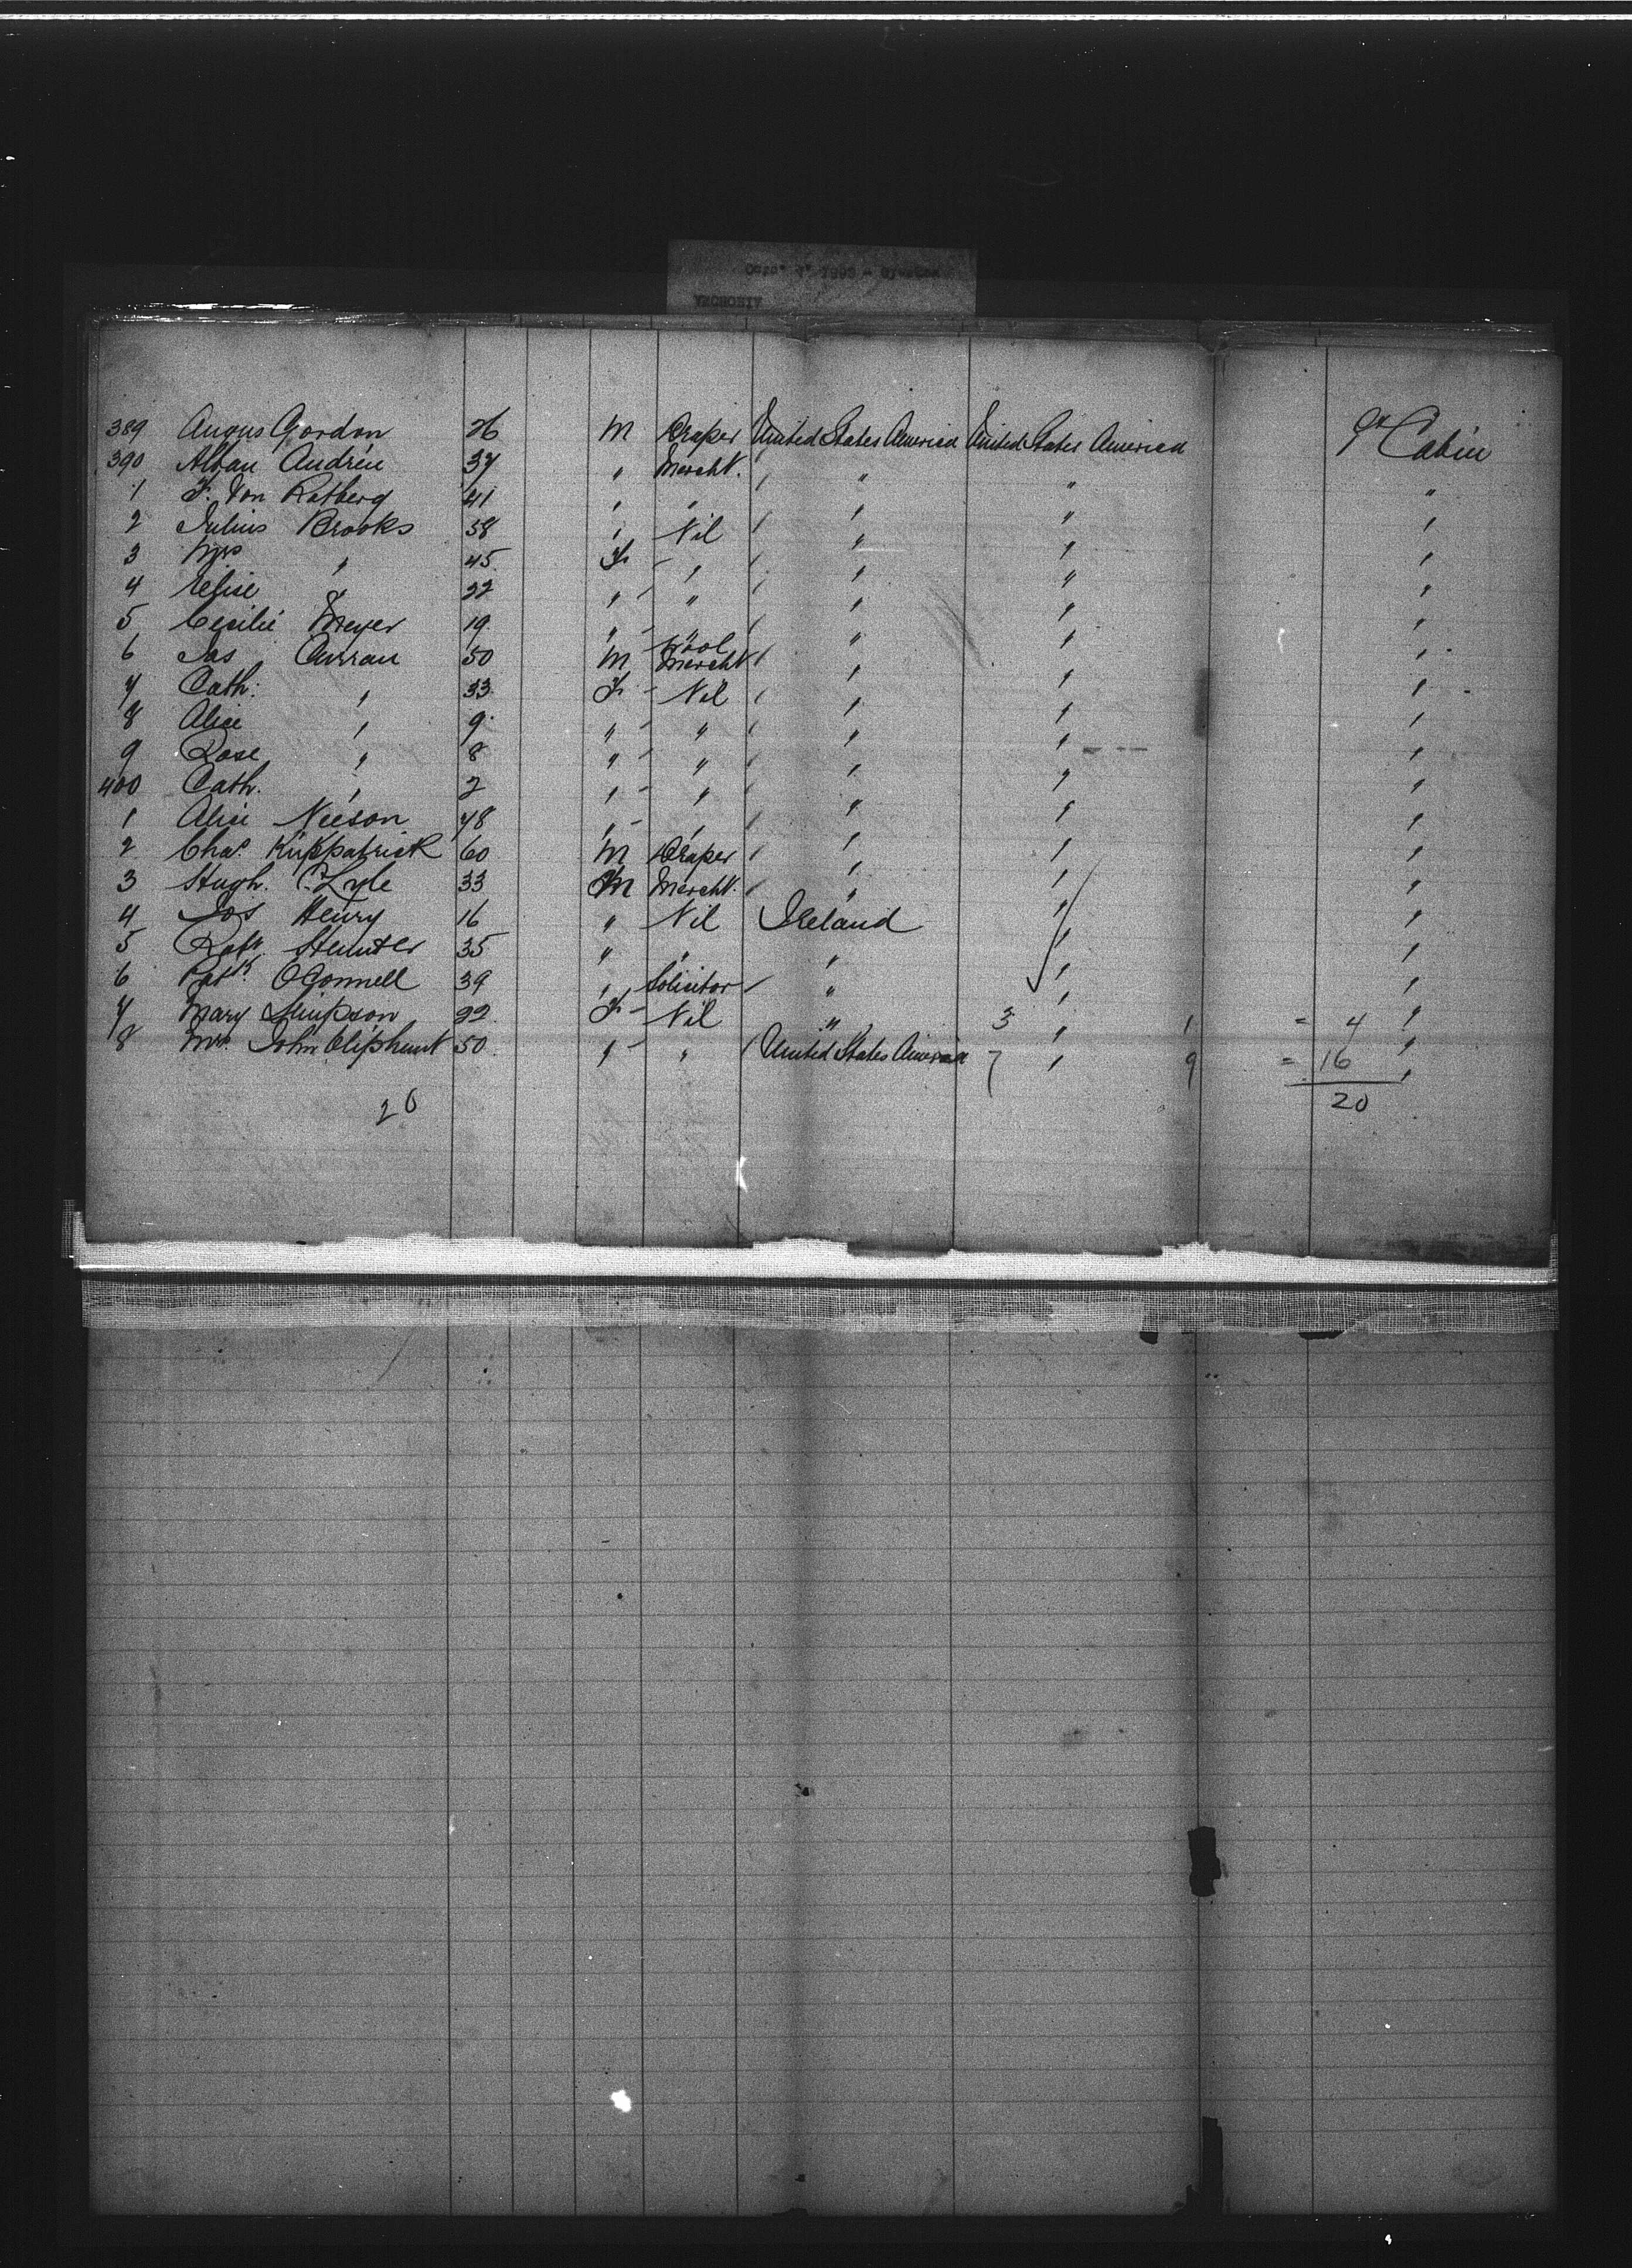 389 Angus Gordon 26 M Draper United States America United States America 1st Cabin
390 Alban Andréu 37 " Mercht. " " "
1 F. Von Ratberg 41 " " " " "
2 Julius Brooks 58 " Nil " " "
3 Mrs " 45 F " " " "
4 Elise " 22 " " " " "
5 Cecilie Meyer 19 " " " " "
6 Jas Curran 50 M Wool Mercht " " "
7 Cath: " 33 F Nil " " "
8 Alice " 9 " " " " "
9 Rose " 8 " " " " "
400 Cath. " 2 " " " " "
1 Alice Neeson 48 " " " " "
2 Chas. Kirkpatrick 60 M Draper " " "
3 Hugh. C. Lyle 33 M Mercht. " " "
4 Jos Henry 16 " Nil Ireland " "
5 Robt. Hunter 35 " " " " "
6 Patk. O'Connell 39 " Solicitor " " "
7 Mary Simpson 22 F Nil " 3 " 1 = 4 "
8 Mrs. John Oliphant 50 " " United States America 7 " 9 = 16 "
20 20